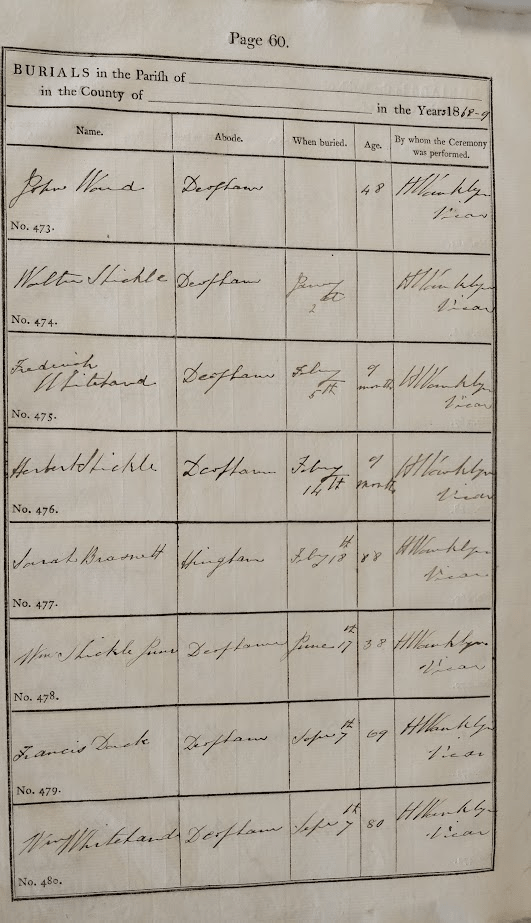 Page 60.
BURIALS in the Parish of
in the County of
in the Years 1868-9
Name. Abode. When buried. Age. By whom the Ceremony was performed.
John Ward Deopham 48 H Wanklyn
Vicar
No. 473.
Walter Stickle Deopham Jany H Wanklyn
2 Vicar
No. 474.
Fredrick Deopham Feby 9 H Wanklyn
Whitehand 5th months Vicar
No. 475.
Herbert Stickle Deopham Feby 9 H Wanklyn
14th months Vicar
No. 476.
Sarah Brasnett Hingham Feby 18th 88 H Wanklyn
Vicar
No. 477.
Wm Stickle Junr Deopham June 17th 38 H Wanklyn
Vicar
No. 478.
Francis Dack Deopham Sepr 7th 69 H Wanklyn
Vicar
No. 479.
Wm Whitehand Deopham Sepr 7th 80 H Wanklyn
Vicar
No. 480.